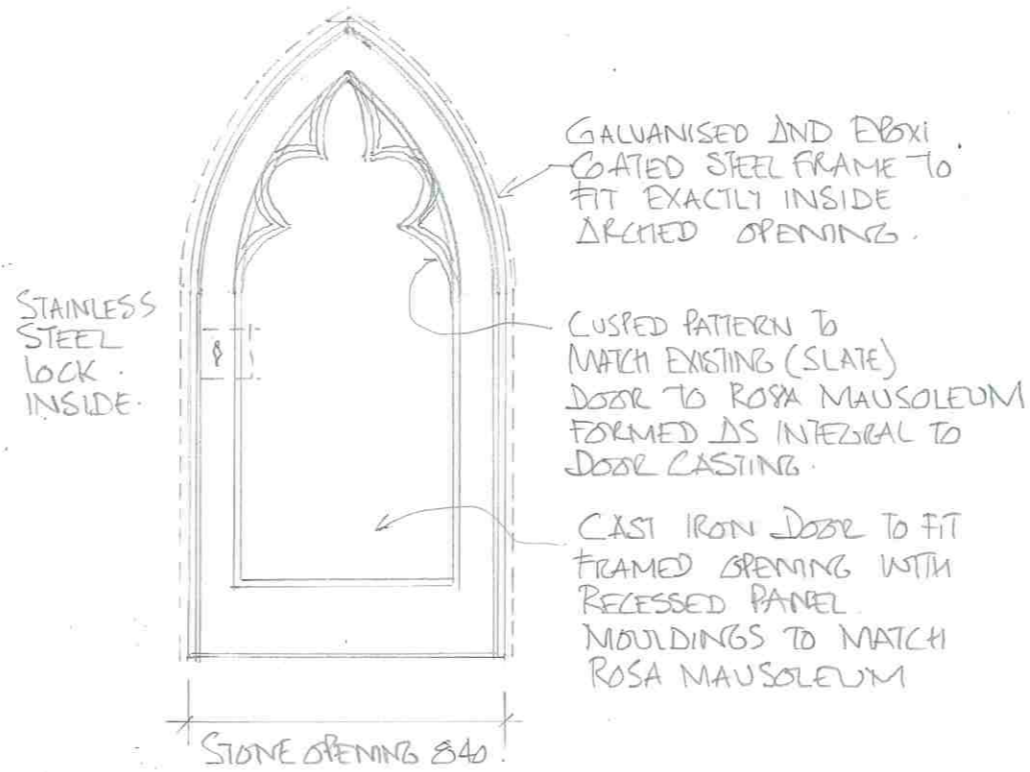 GALVANISED AND EPOXI
COATED STEEL FRAME TO
FIT EXACTLY INSIDE
ARCHED OPENING.
STAINLESS
STEEL
LOCK.
INSIDE.
CUSPED PATTERN TO
MATCH EXISTING (SLATE)
DOOR TO ROSA MAUSOLEUM
FORMED AS INTEGRAL TO
DOOR CASTING.
CAST IRON DOOR TO FIT
FRAMED OPENING WITH
RECESSED PANEL
MOULDINGS TO MATCH
ROSA MAUSOLEUM
STONE OPENING 840.